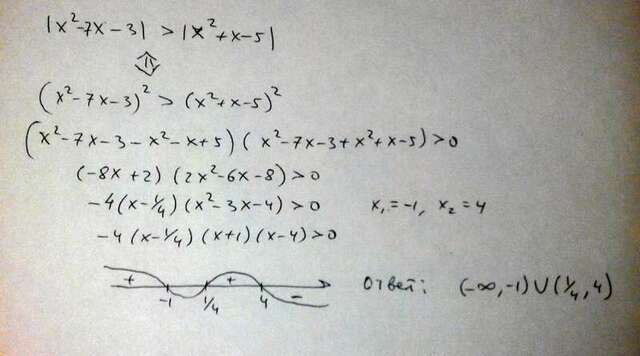 |x²-7x-3| > |x²+x-5|
⇕
(x²-7x-3)² > (x²+x-5)²
(x²-7x-3-x²-x+5)(x²-7x-3+x²+x-5)>0
(-8x+2)(2x²-6x-8)>0
-4(x-1/4)(x²-3x-4)>0 x₁=-1, x₂=4
-4(x-1/4)(x+1)(x-4)>0
+ + -
-1 1/4 4
Ответ: (-∞,-1)∪(1/4,4)